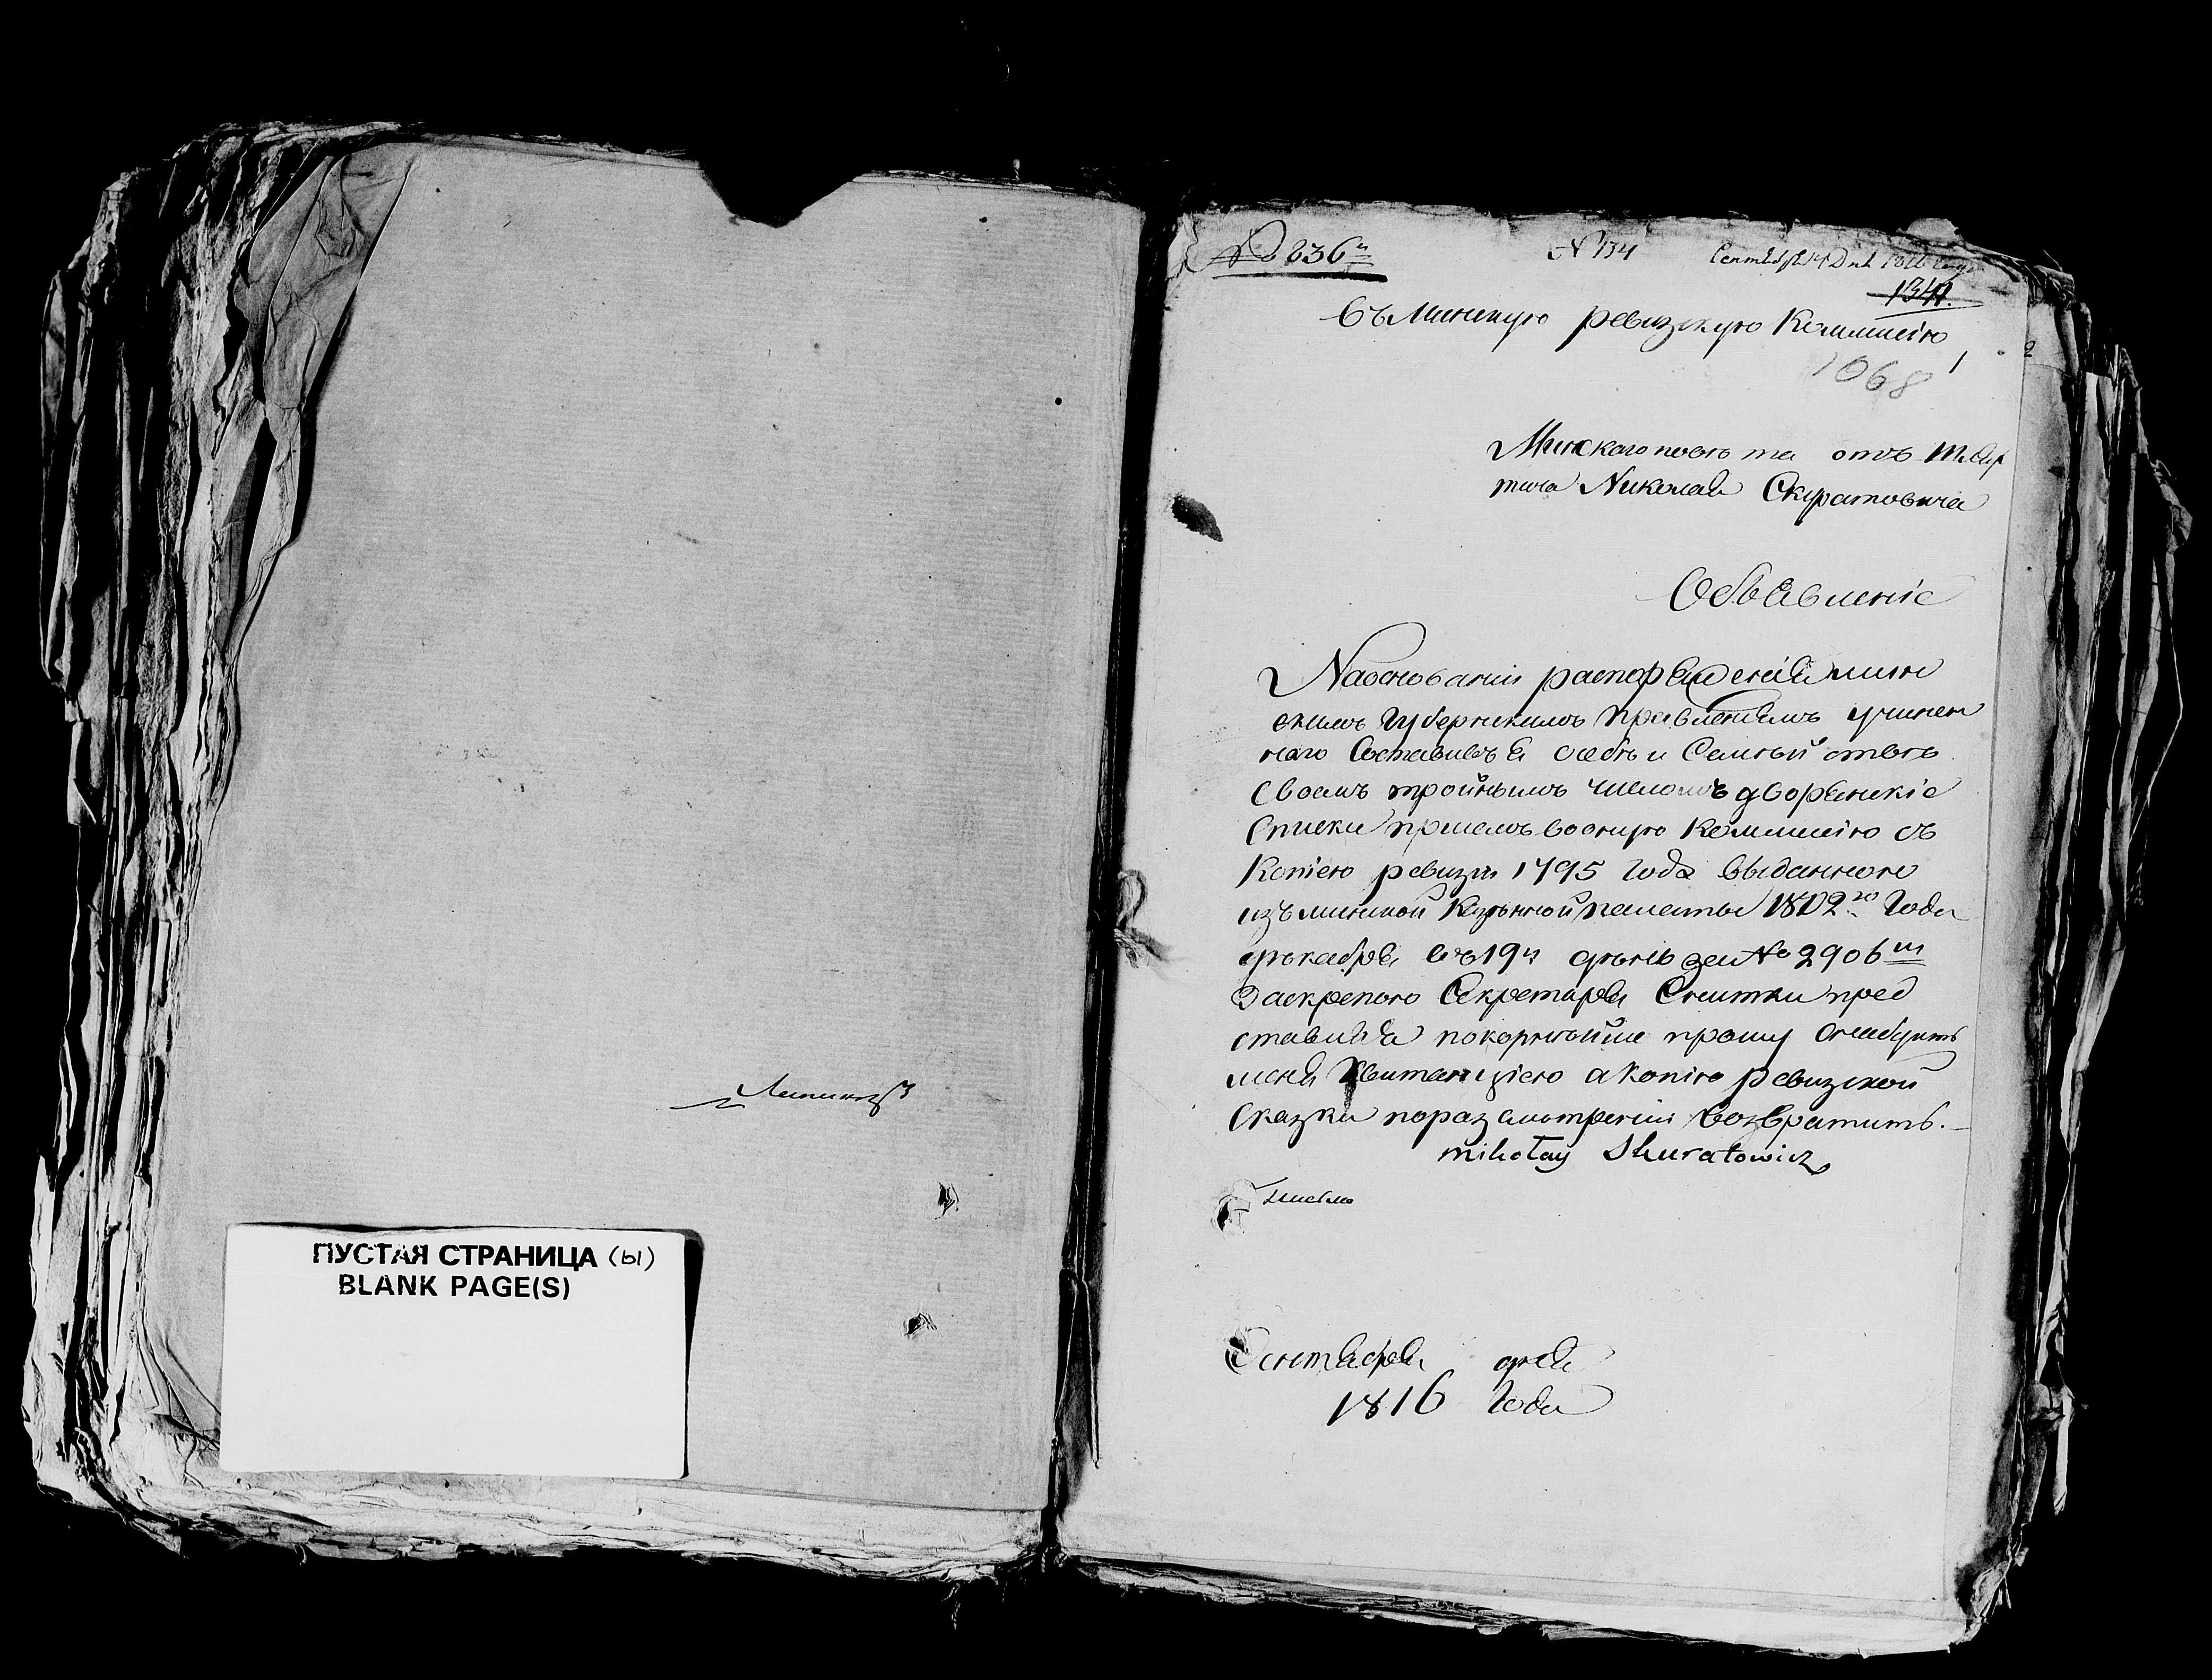 ПУСТАЯ СТРАНИЦА (ы)
BLANK PAGE(S)
№ 236
№ 134
Сентября 14 Дня 1816 году
134
Въ Минскую ревизскую Коммисію
1068
1
2
Минскаго повета отъ
Николая Скуратовича
Объявленіе
На основаніи распоряженія мин
скимъ Губернскимъ Правленіемъ учинен
наго Составивъ я о себѣ и Семьѣ
своемъ тройнымъ числомъ дворянскіе
Списки при семъ во оную Коммисію съ
Копіею ревизіи 1795 года выданною
изъ минской Казенной палаты 1812го Года
декабря въ 19й день за № 2906м
За скрепою Секретаря пред
ставляя покорнейше прошу снабдить
меня Квитанціею а копію ревизской
Сказки по разсмотреніи возвратить.
mikołay Skuratowicz
Сентября дня
1816 Года